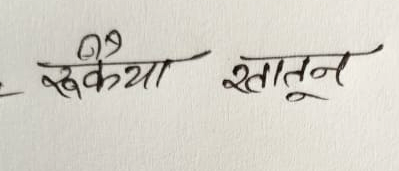 रूकैया खातून